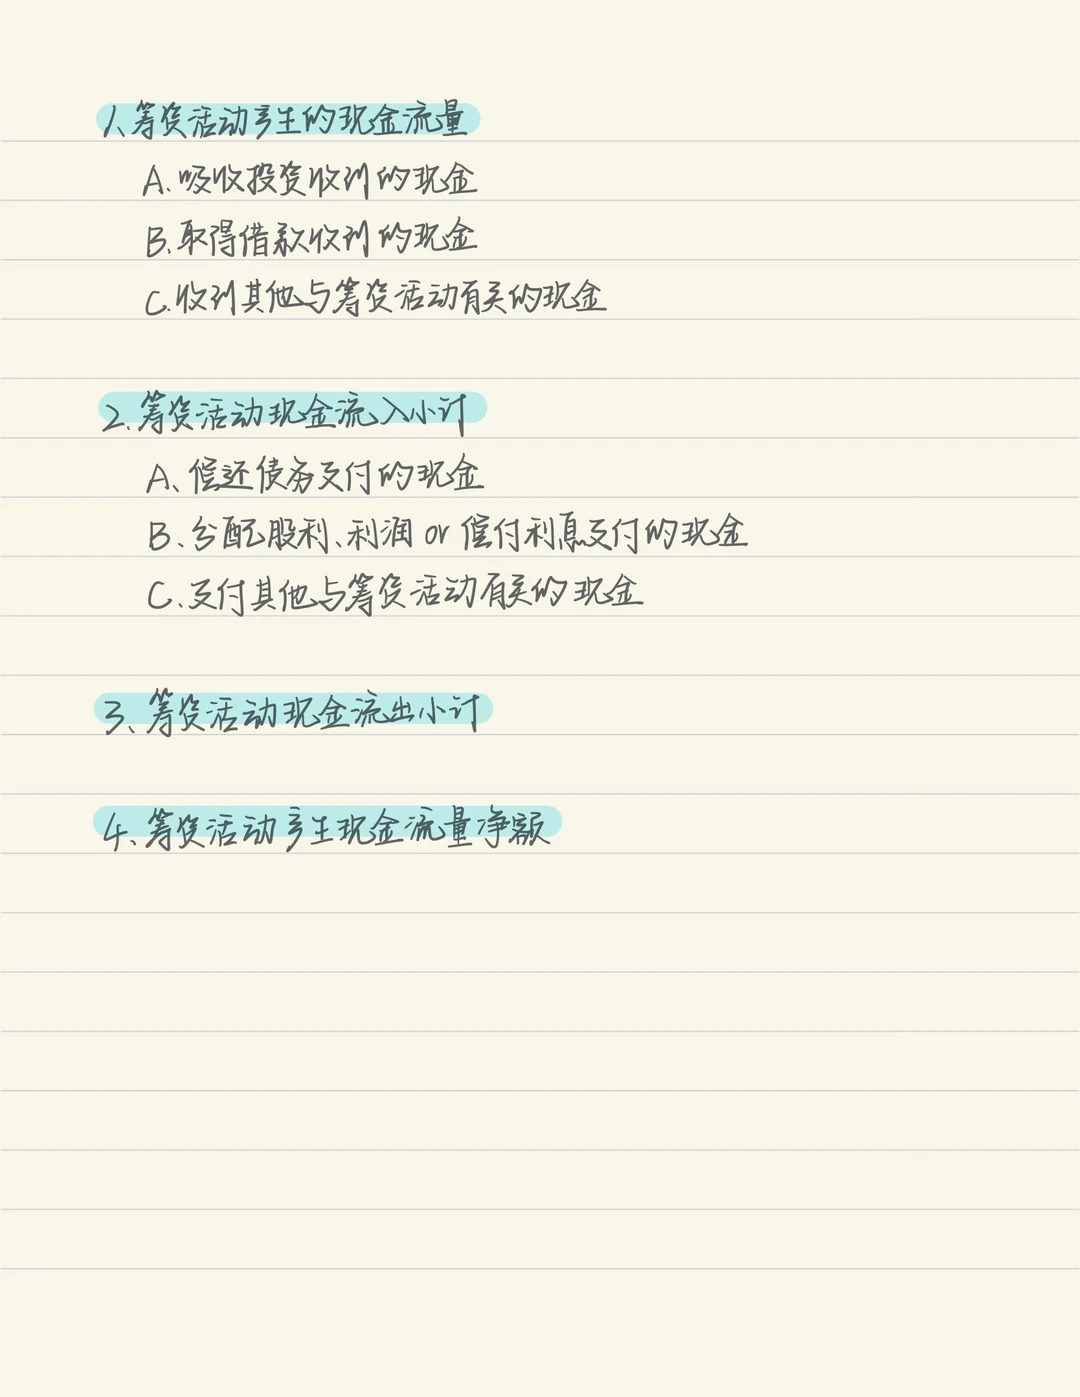 1、筹资活动产生的现金流量
A.吸收投资收到的现金
B.取得借款收到的现金
C.收到其他与筹资活动有关的现金
2.筹资活动现金流入小计
A、偿还债务支付的现金
B、分配股利、利润 or 偿付利息支付的现金
C.支付其他与筹资活动有关的现金
3、筹资活动现金流出小计
4、筹资活动产生现金流量净额